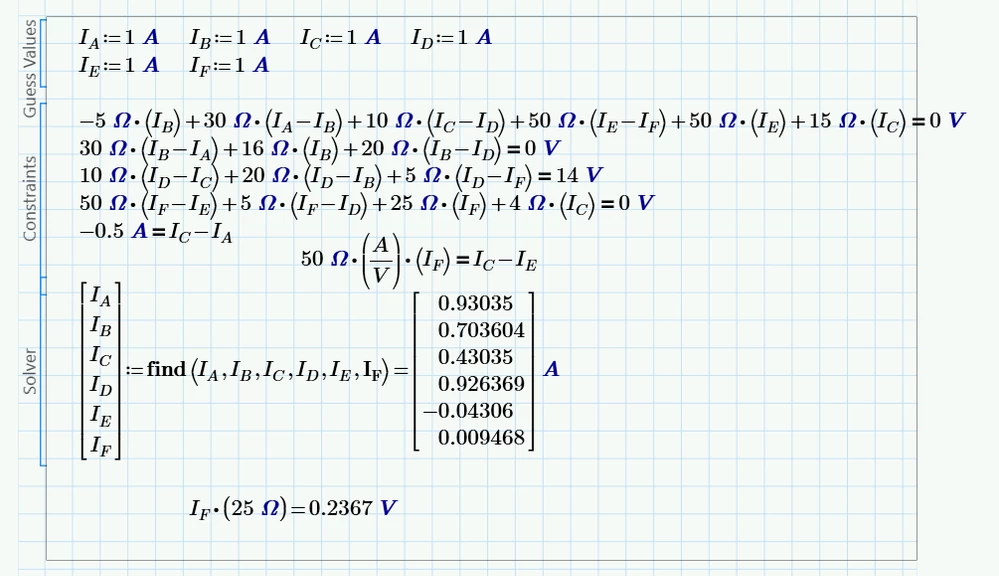 Guess Values
I_A:=1 A I_B:=1 A I_C:=1 A I_D:=1 A
I_E:=1 A I_F:=1 A
Constraints
−5 Ω⋅(I_B)+30 Ω⋅(I_A−I_B)+10 Ω⋅(I_C−I_D)+50 Ω⋅(I_E−I_F)+50 Ω⋅(I_E)+15 Ω⋅(I_C)=0 V
30 Ω⋅(I_B−I_A)+16 Ω⋅(I_B)+20 Ω⋅(I_B−I_D)=0 V
10 Ω⋅(I_D−I_C)+20 Ω⋅(I_D−I_B)+5 Ω⋅(I_D−I_F)=14 V
50 Ω⋅(I_F−I_E)+5 Ω⋅(I_F−I_D)+25 Ω⋅(I_F)+4 Ω⋅(I_C)=0 V
−0.5 A=I_C−I_A
50 Ω⋅(A/V)⋅(I_F)=I_C−I_E
Solver
[I_A
I_B
I_C
I_D
I_E
I_F]
:=find(I_A,I_B,I_C,I_D,I_E,I_F)=
[0.93035
0.703604
0.43035
0.926369
−0.04306
0.009468] A
I_F⋅(25 Ω)=0.2367 V